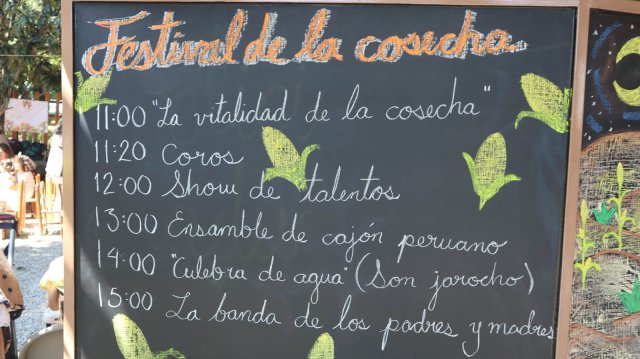 Festival de la cosecha
11:00 "La vitalidad de la cosecha"
11:20 Coros
12:00 Show de talentos
13:00 Ensamble de cajón peruano
14:00 "Culebra de agua" (Son jarocho)
15:00 La banda de los padres y madres